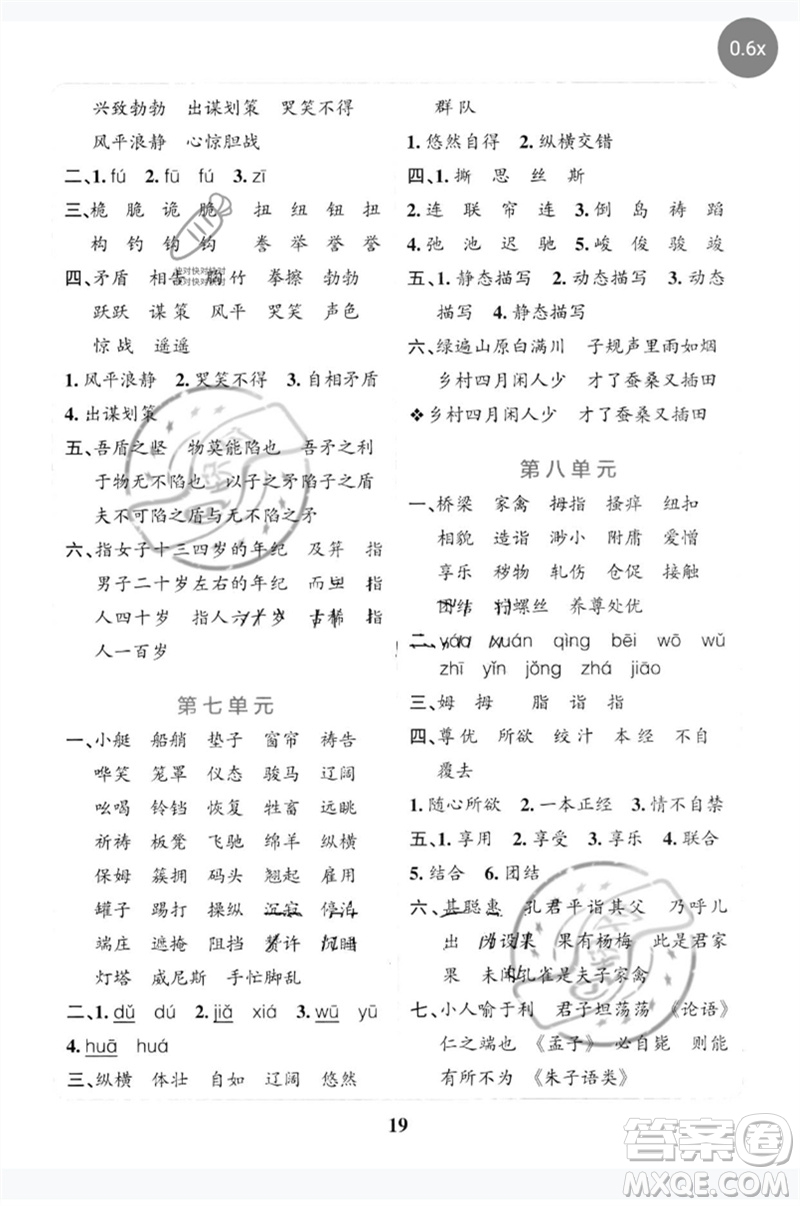 0.6x
兴致勃勃 出谋划策 哭笑不得
风平浪静 心惊胆战
二、1. fú 2. fū fú 3. zī
三、桅 脆 诡 脆 扭 纽 钮 扭
构 钓 钩 钩 誊 举 誉 誉
四、矛盾 相告 胸竹 拳擦 勃勃
跃跃 谋策 风平 哭笑 声色
惊战 遥遥
1. 风平浪静 2. 哭笑不得 3. 自相矛盾
4. 出谋划策
五、吾盾之坚 物莫能陷也 吾矛之利
于物无不陷也 以子之矛陷子之盾
夫不可陷之盾与无不陷之矛
六、指女子十三四岁的年纪 及笄 指
男子二十岁左右的年纪 而立 指
人四十岁 指人六十岁 古稀 指
人一百岁
第七单元
一、小艇 船艄 垫子 窗帘 祷告
哗笑 笼罩 仪态 骏马 辽阔
吆喝 铃铛 恢复 牲畜 远眺
祈祷 板凳 飞驰 绵羊 纵横
保姆 簇拥 码头 翘起 雇用
罐子 踢打 操纵 沉寂 停泊
端庄 遮掩 阻挡 赞许 沉睡
灯塔 威尼斯 手忙脚乱
二、1. dǔ dú 2. jiǎ xiá 3. wū yū
4. huā huá
三、纵横 体壮 自如 辽阔 悠然
群队
1. 悠然自得 2. 纵横交错
四、1. 撕 思 丝 斯
2. 连 联 帘 连 3. 倒 岛 祷 蹈
4. 弛 池 迟 驰 5. 峻 俊 骏 竣
五、1. 静态描写 2. 动态描写 3. 动态
描写 4. 静态描写
六、绿遍山原白满川 子规声里雨如烟
乡村四月闲人少 才了蚕桑又插田
❖ 乡村四月闲人少 才了蚕桑又插田
第八单元
一、桥梁 家禽 拇指 搔痒 纽扣
相貌 造诣 渺小 附庸 爱憎
享乐 秽物 轧伤 仓促 接触
团结 拧螺丝 养尊处优
二、yáo xuán qìng bēi wō wǔ
zhī yǐn jǒng zhá jiāo
三、姆 拇 脂 诣 指
四、尊优 所欲 绞汁 本经 不自
覆去
1. 随心所欲 2. 一本正经 3. 情不自禁
五、1. 享用 2. 享受 3. 享乐 4. 联合
5. 结合 6. 团结
六、甚聪惠 孔君平诣其父 乃呼儿
出 为设果 果有杨梅 此是君家
果 未闻孔雀是夫子家禽
七、小人喻于利 君子坦荡荡 《论语》
仁之端也 《孟子》 必自毙 则能
有所不为 《朱子语类》
19
答案圈
MXQE.COM